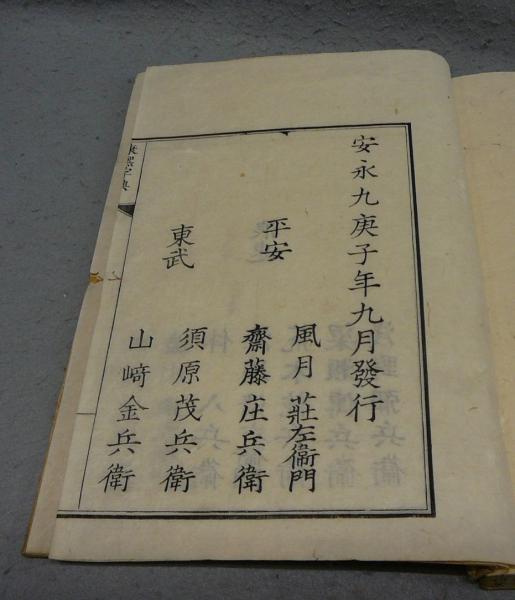 安永九庚子年九月發行
平安
風月莊左衞門
齋藤庄兵衞
東武
須原茂兵衞
山﨑金兵衞
字典